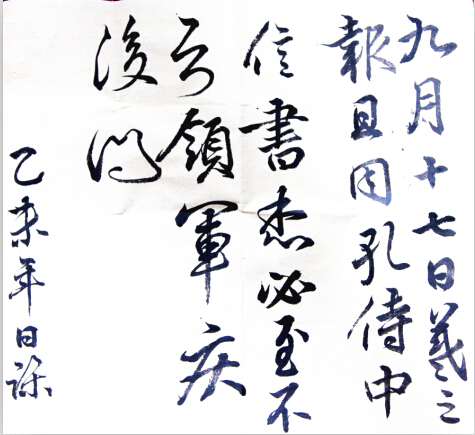 九月十七日羲之
報且因孔侍中
信書想必至不
知領軍疾
後問
乙未年日課